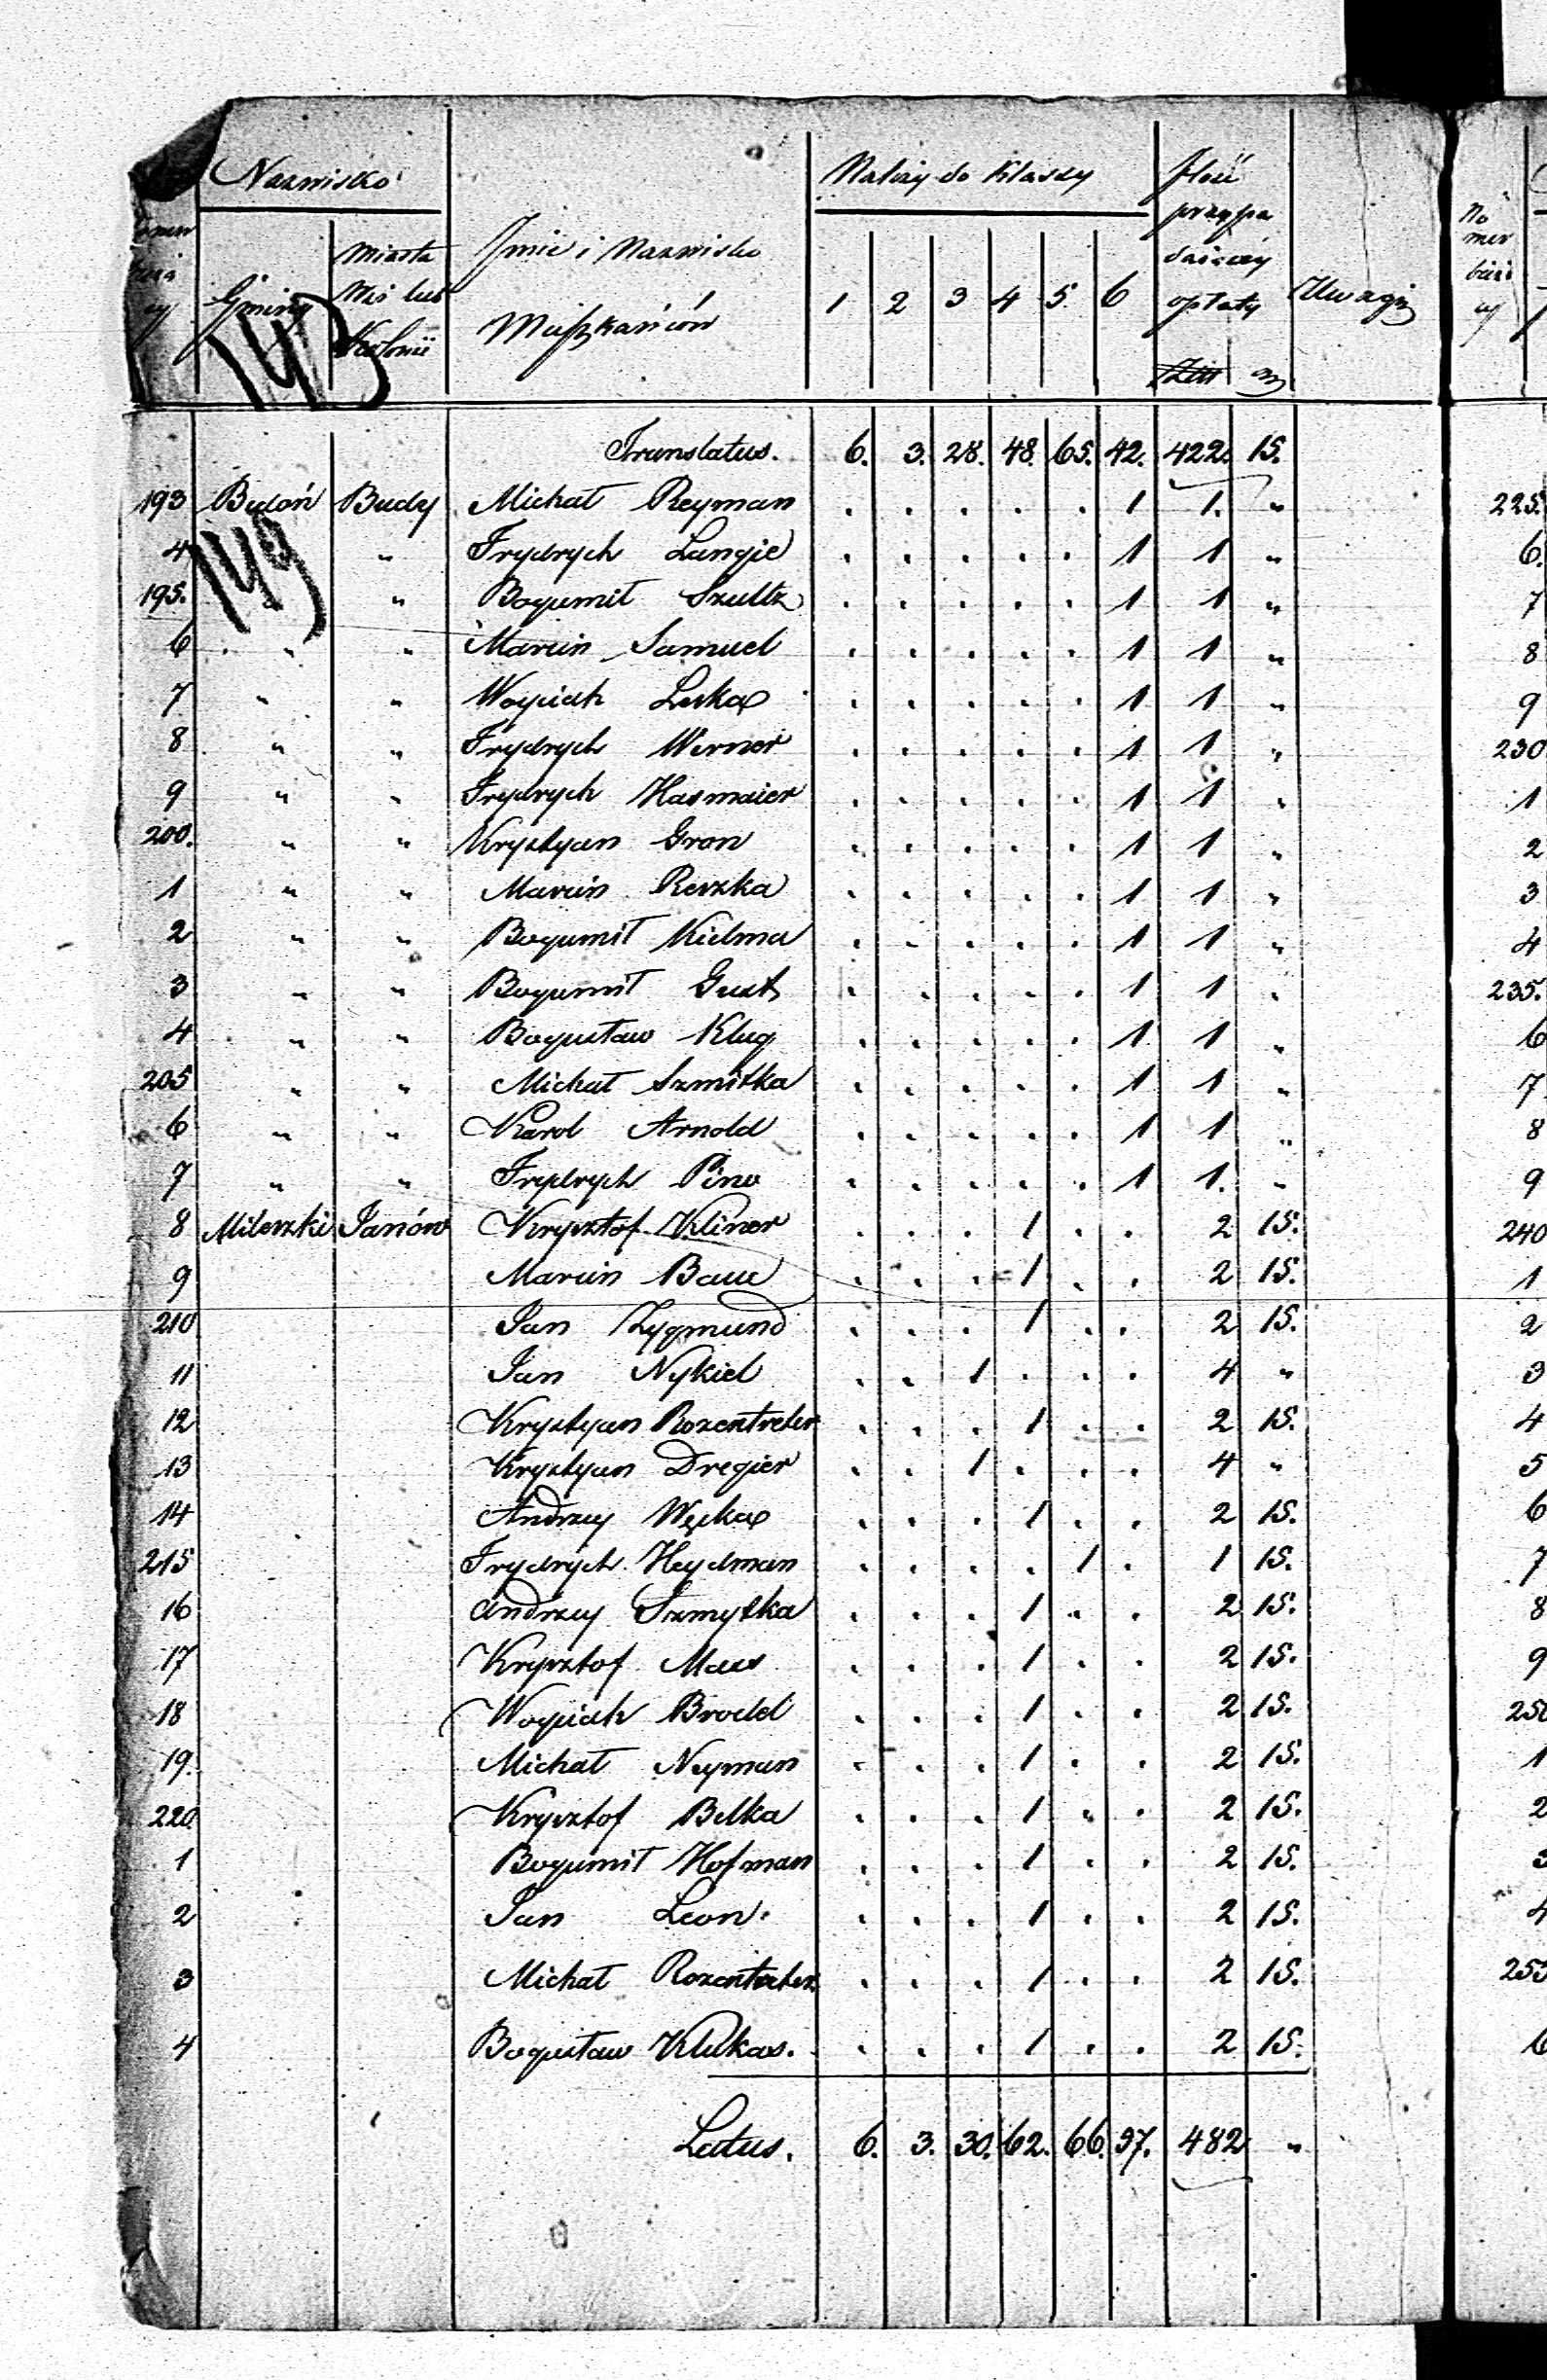 Nazwisko
Gminy
Miasta
Wsi lub
Kolonii
Jmie i Nazwisko
Mieszkańców
Należy do Klassy
1 2 3 4 5 6
Ilość
przypa
daiącey
opłaty
Złł gr
Uwagi
143
149
Translatus. 6. 3. 28. 48. 65. 42. 422. 15.
193 Bedoń Budy Michał Reyman . . . . . 1 1. "
4 " Frydrych Langie . . . . . 1 1 "
195. " " Bogumił Szultz . . . . . 1 1 "
6 " " Marcin Samuel . . . . . 1 1 "
7 " " Woyciech Leska . . . . . 1 1 "
8 " " Frydrych Werner . . . . . 1 1 "
9 " " Frydrych Hasmaier . . . . . 1 1 "
200. " " Krystyan Gron . . . . . 1 1 "
1 " " Marcin Reszka . . . . . 1 1 "
2 " " Bogumił Kielma . . . . . 1 1 "
3 " " Bogumił Guzt . . . . . 1 1 "
4 " " Bogusław Klug . . . . . 1 1 "
205 " " Michał Szmitka . . . . . 1 1 "
6 " " Karol Arnold . . . . . 1 1 "
7 " " Frydrych Pino . . . . . 1 1. "
8 Mileszki Janów Krysztof Kliner . . . 1 . . 2 15.
9 Marcin Baue . . . 1 . . 2 15.
210 Jan Zygmund . . . 1 . . 2 15.
11 Jan Nykiel . . 1 . . . 4 "
12 Krystyan Rozentreter . . . 1 . . 2 15.
13 Krystyan Dregier . . 1 . . . 4 "
14 Andrzey Węska . . . 1 . . 2 15.
215 Frydrych Heydman . . . . 1 . 1 15.
16 Andrzey Szmytka . . . 1 . . 2 15.
17 Krysztof Maus . . . 1 . . 2 15.
18 Woyciech Brodel . . . 1 . . 2 15.
19. Michał Neyman . . . 1 . . 2 15.
220 Krysztof Belka . . . 1 . . 2 15.
1 Bogumił Hofman . . . 1 . . 2 15.
2 Jan Leon. . . . 1 . . 2 15.
3 Michał Rozentreter . . . 1 . . 2 15.
4 Bogusław Klukas. . . . 1 . . 2 15.
Latus. 6. 3. 30. 62. 66. 97. 482 "
No
mer
bieżą
cy
225.
6.
7
8
9
230
1
2
3
4
235.
6
7
8
9
240
1
2
3
4
5
6
7
8
9
1
2
3
4
6